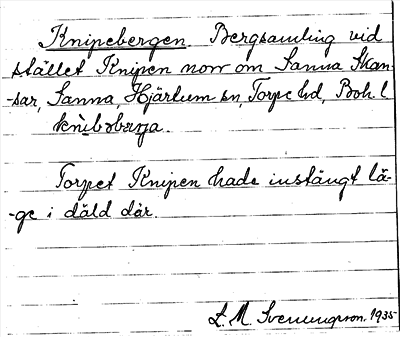 Knipebergen. Bergsamling vid
stället Knipen norr om Sanna Skan-
-sar, Sanna, Hjärtum sn, Torpe hd, Boh. l
knìbəbærja.
Torpet Knipen hade instängt lä-
-ge i däld där.
L. M. Svenungsson. 1935